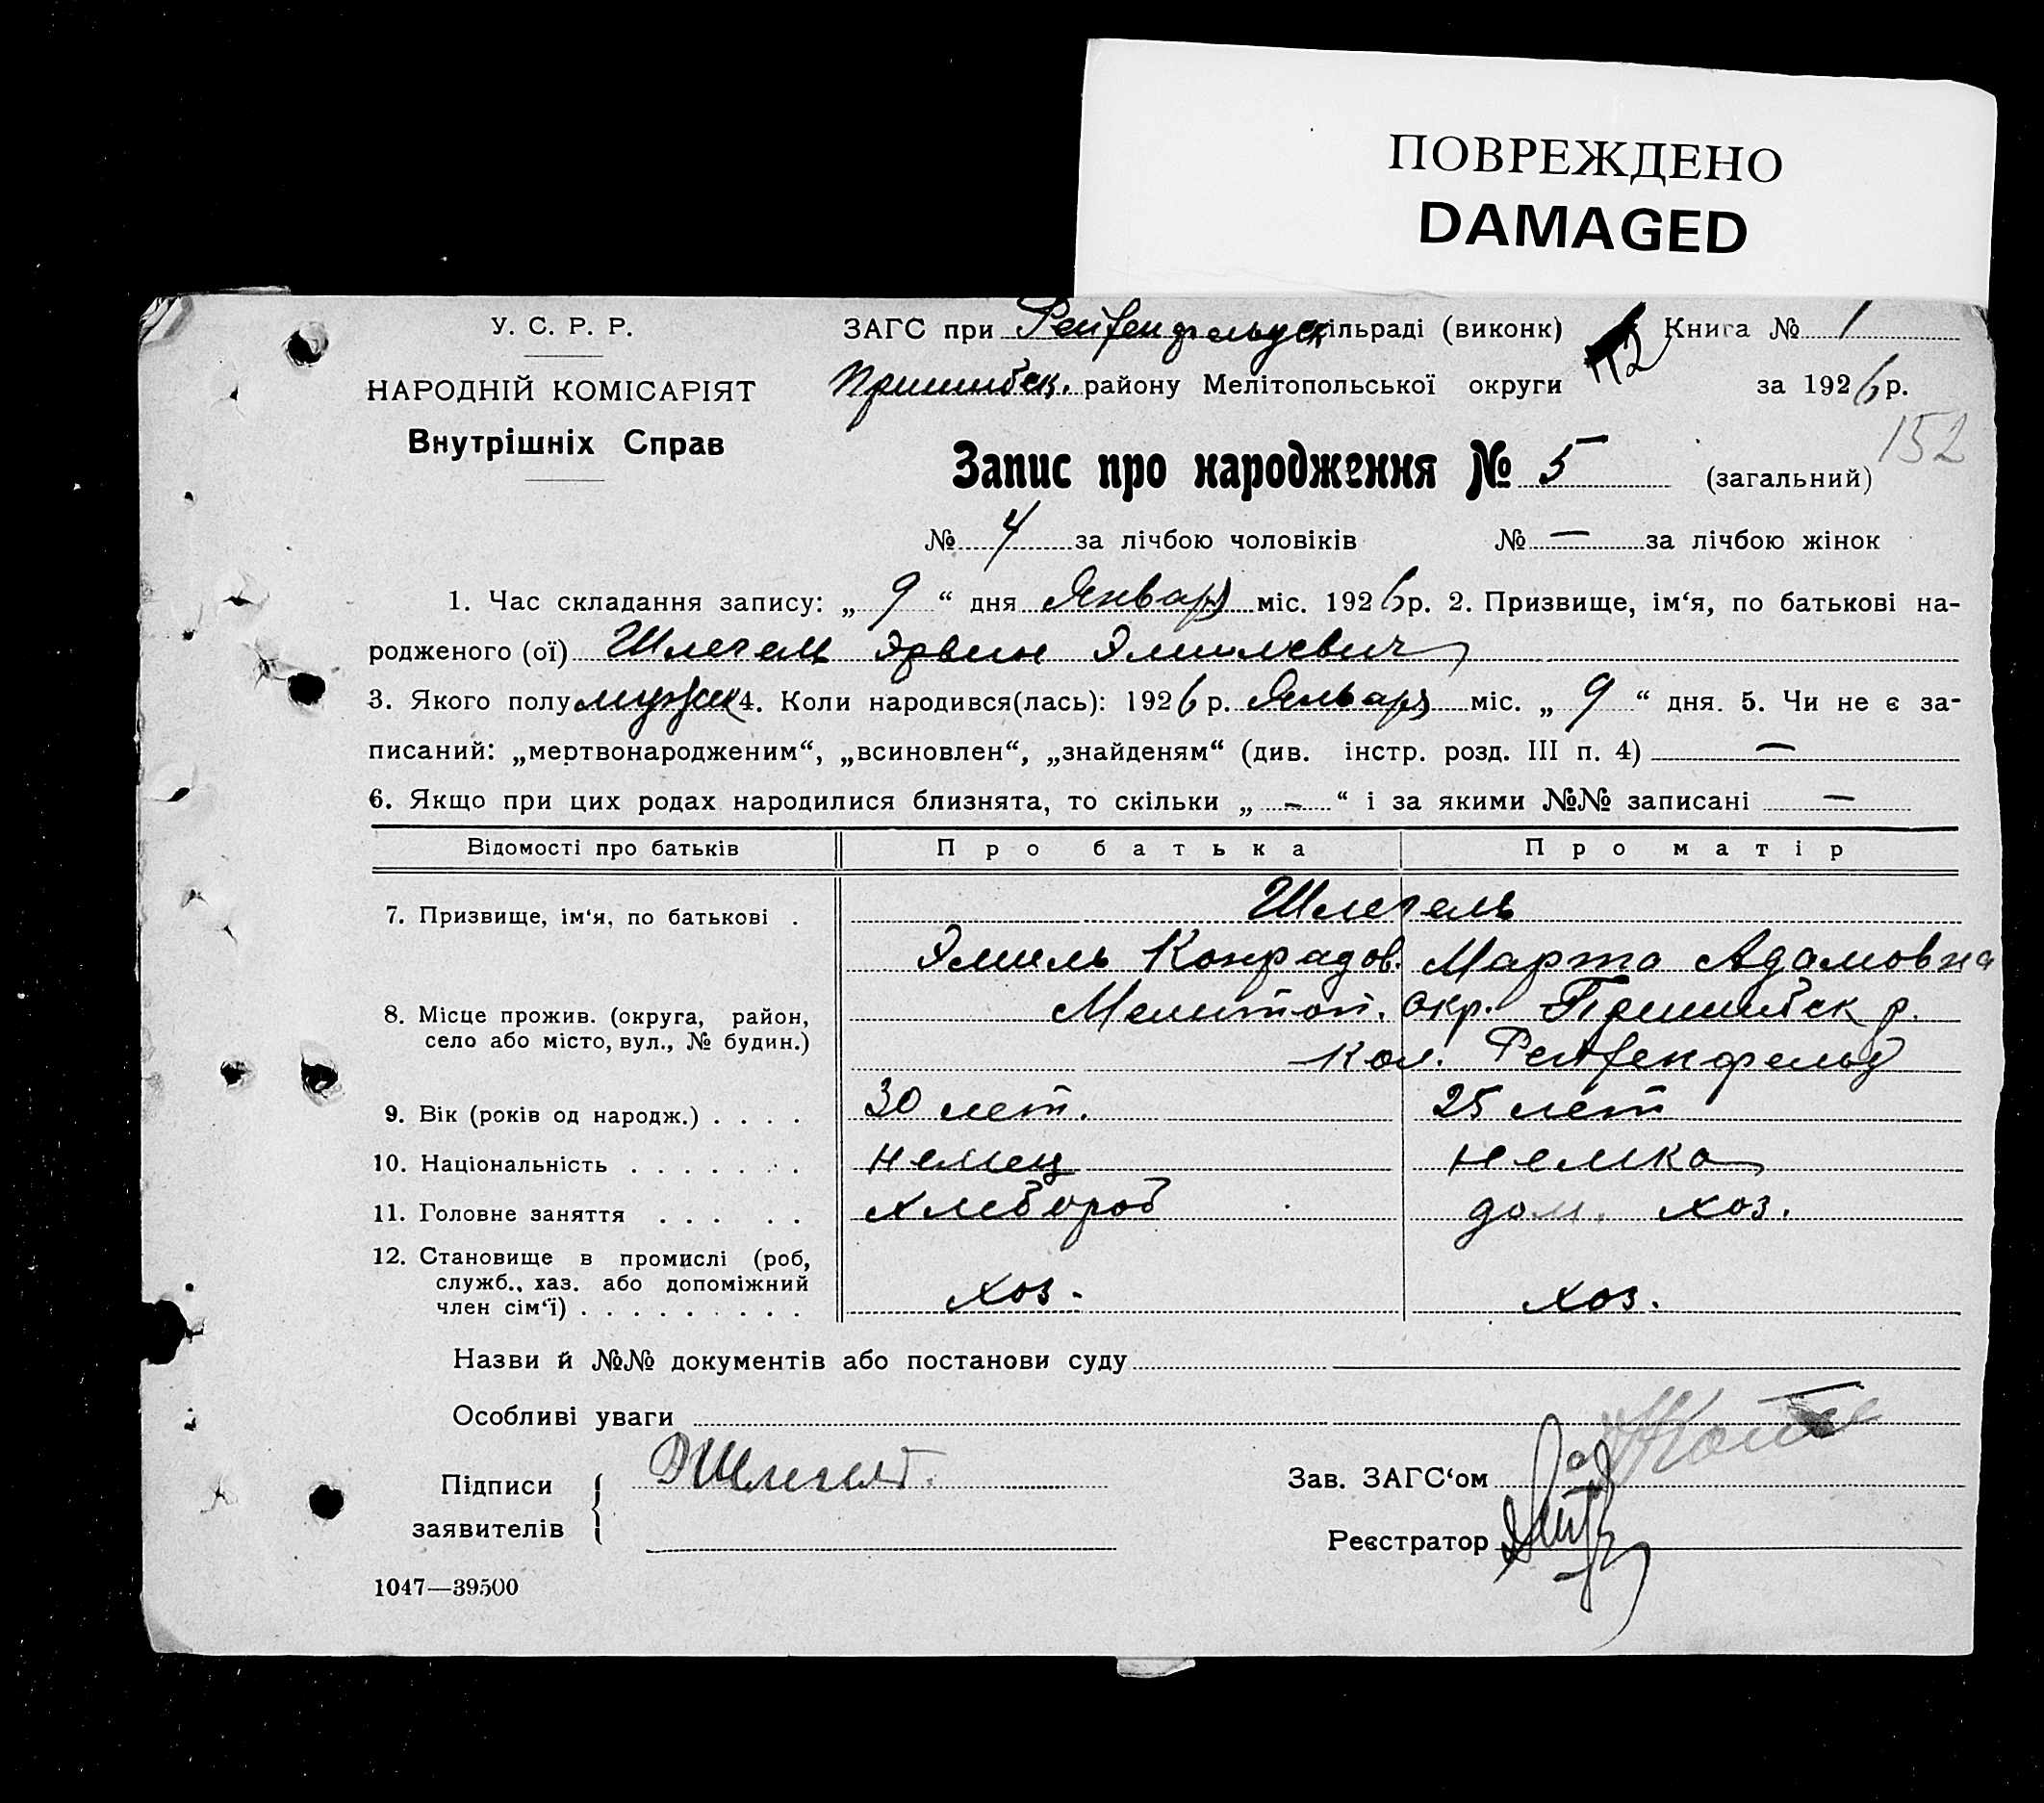 ПОВРЕЖДЕНО
DAMAGED
У. С. Р. Р.
НАРОДНІЙ КОМІСАРІЯТ
Внутрішніх Справ
ЗАГС при Рейхенфельдск сільраді (виконк) Книга № 1
Пришибск. району Мелітопольської округи за 1926 р.
112
152
Запис про народження № 5 (загальний)
№ 4 за лічбою чоловіків № — за лічбою жінок
1. Час складання запису: „ 9 “ дня Января міс. 1926 р. 2. Призвище, ім‘я, по батькові на-
родженого (ої) Шлегель Эрвин Эмильевич
3. Якого полу мужск 4. Коли народився(лась): 1926 р. Января міс. „ 9 “ дня. 5. Чи не є за-
писаний: „мертвонародженим“, „всиновлен“, „знайденям“ (див. інстр. розд. III п. 4) —
6. Якщо при цих родах народилися близнята, то скільки „ — “ і за якими №№ записані —
Відомості про батьків Про батька Про матір
7. Призвище, ім‘я, по батькові . Шлегель
Эмиль Конрадов. Марта Адамовна
8. Місце прожив. (округа, район, Мелитоп. окр. Пришибск р.
село або місто, вул., № будин.) Кол. Рейхенфельд
9. Вік (років од народж.) . . . . 30 лет. 25 лет
10. Національність . . . . . . . немец немка
11. Головне заняття . . . . . хлебороб дом. хоз.
12. Становище в промислі (роб,
служб., хаз. або допоміжний
член сім‘ї) . . . . . . . . . хоз. хоз.
Назви й №№ документів або постанови суду
Особливі уваги
Підписи Э Шлегель.
заявителів
Зав. ЗАГС‘ом
Реєстратор
1047—39500